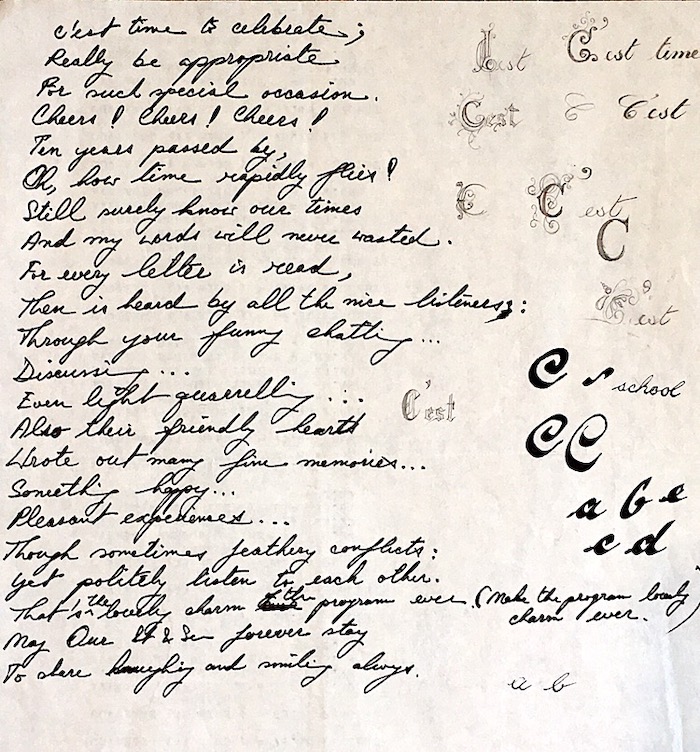 c'est time to celebrate,;
Really be appropriate
For such special occasion.
Cheers! Cheers! Cheers!
Ten years passed by,
Oh, how time rapidly flies!
Still surely know our times
And my words will never wasted.
For every letter is read,
Then is heard by all the nice listeners;:
Through your funny chatting...
Discussing...
Even light quarrelling...
Also their friendly hearts
Wrote out many fine memories...
Something happy...
Pleasant experiences...
Though sometimes feathery conflicts:
Yet politely listen to each other.
That's the lovely charm the program ever. (Make the program lovely
charm ever.)
May Our & Sun forever stay
To share laughing and smiling always.
C'est C'est time
C'est C C'est
C C'est
C
C'est
C'est
C school
C C
a b e
c d
a b